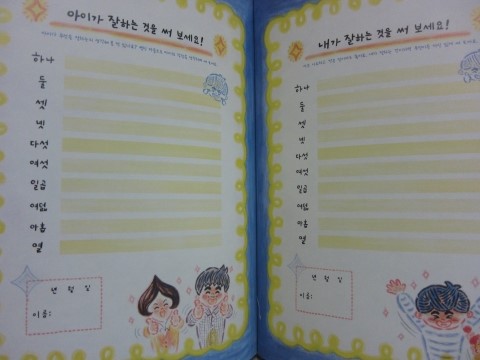 아이가 잘하는 것을 써 보세요!
하나
둘
셋
넷
다섯
여섯
일곱
여덟
아홉
열
년 월 일
이름:
내가 잘하는 것을 써 보세요!
하나
둘
셋
넷
다섯
여섯
일곱
여덟
아홉
열
년 월 일
이름: